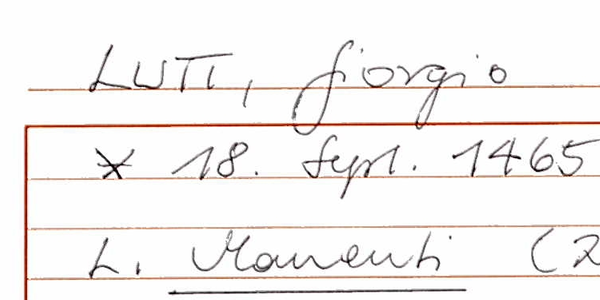 LUTI, Giorgio
* 18. Sept. 1465
L. Manenti (2